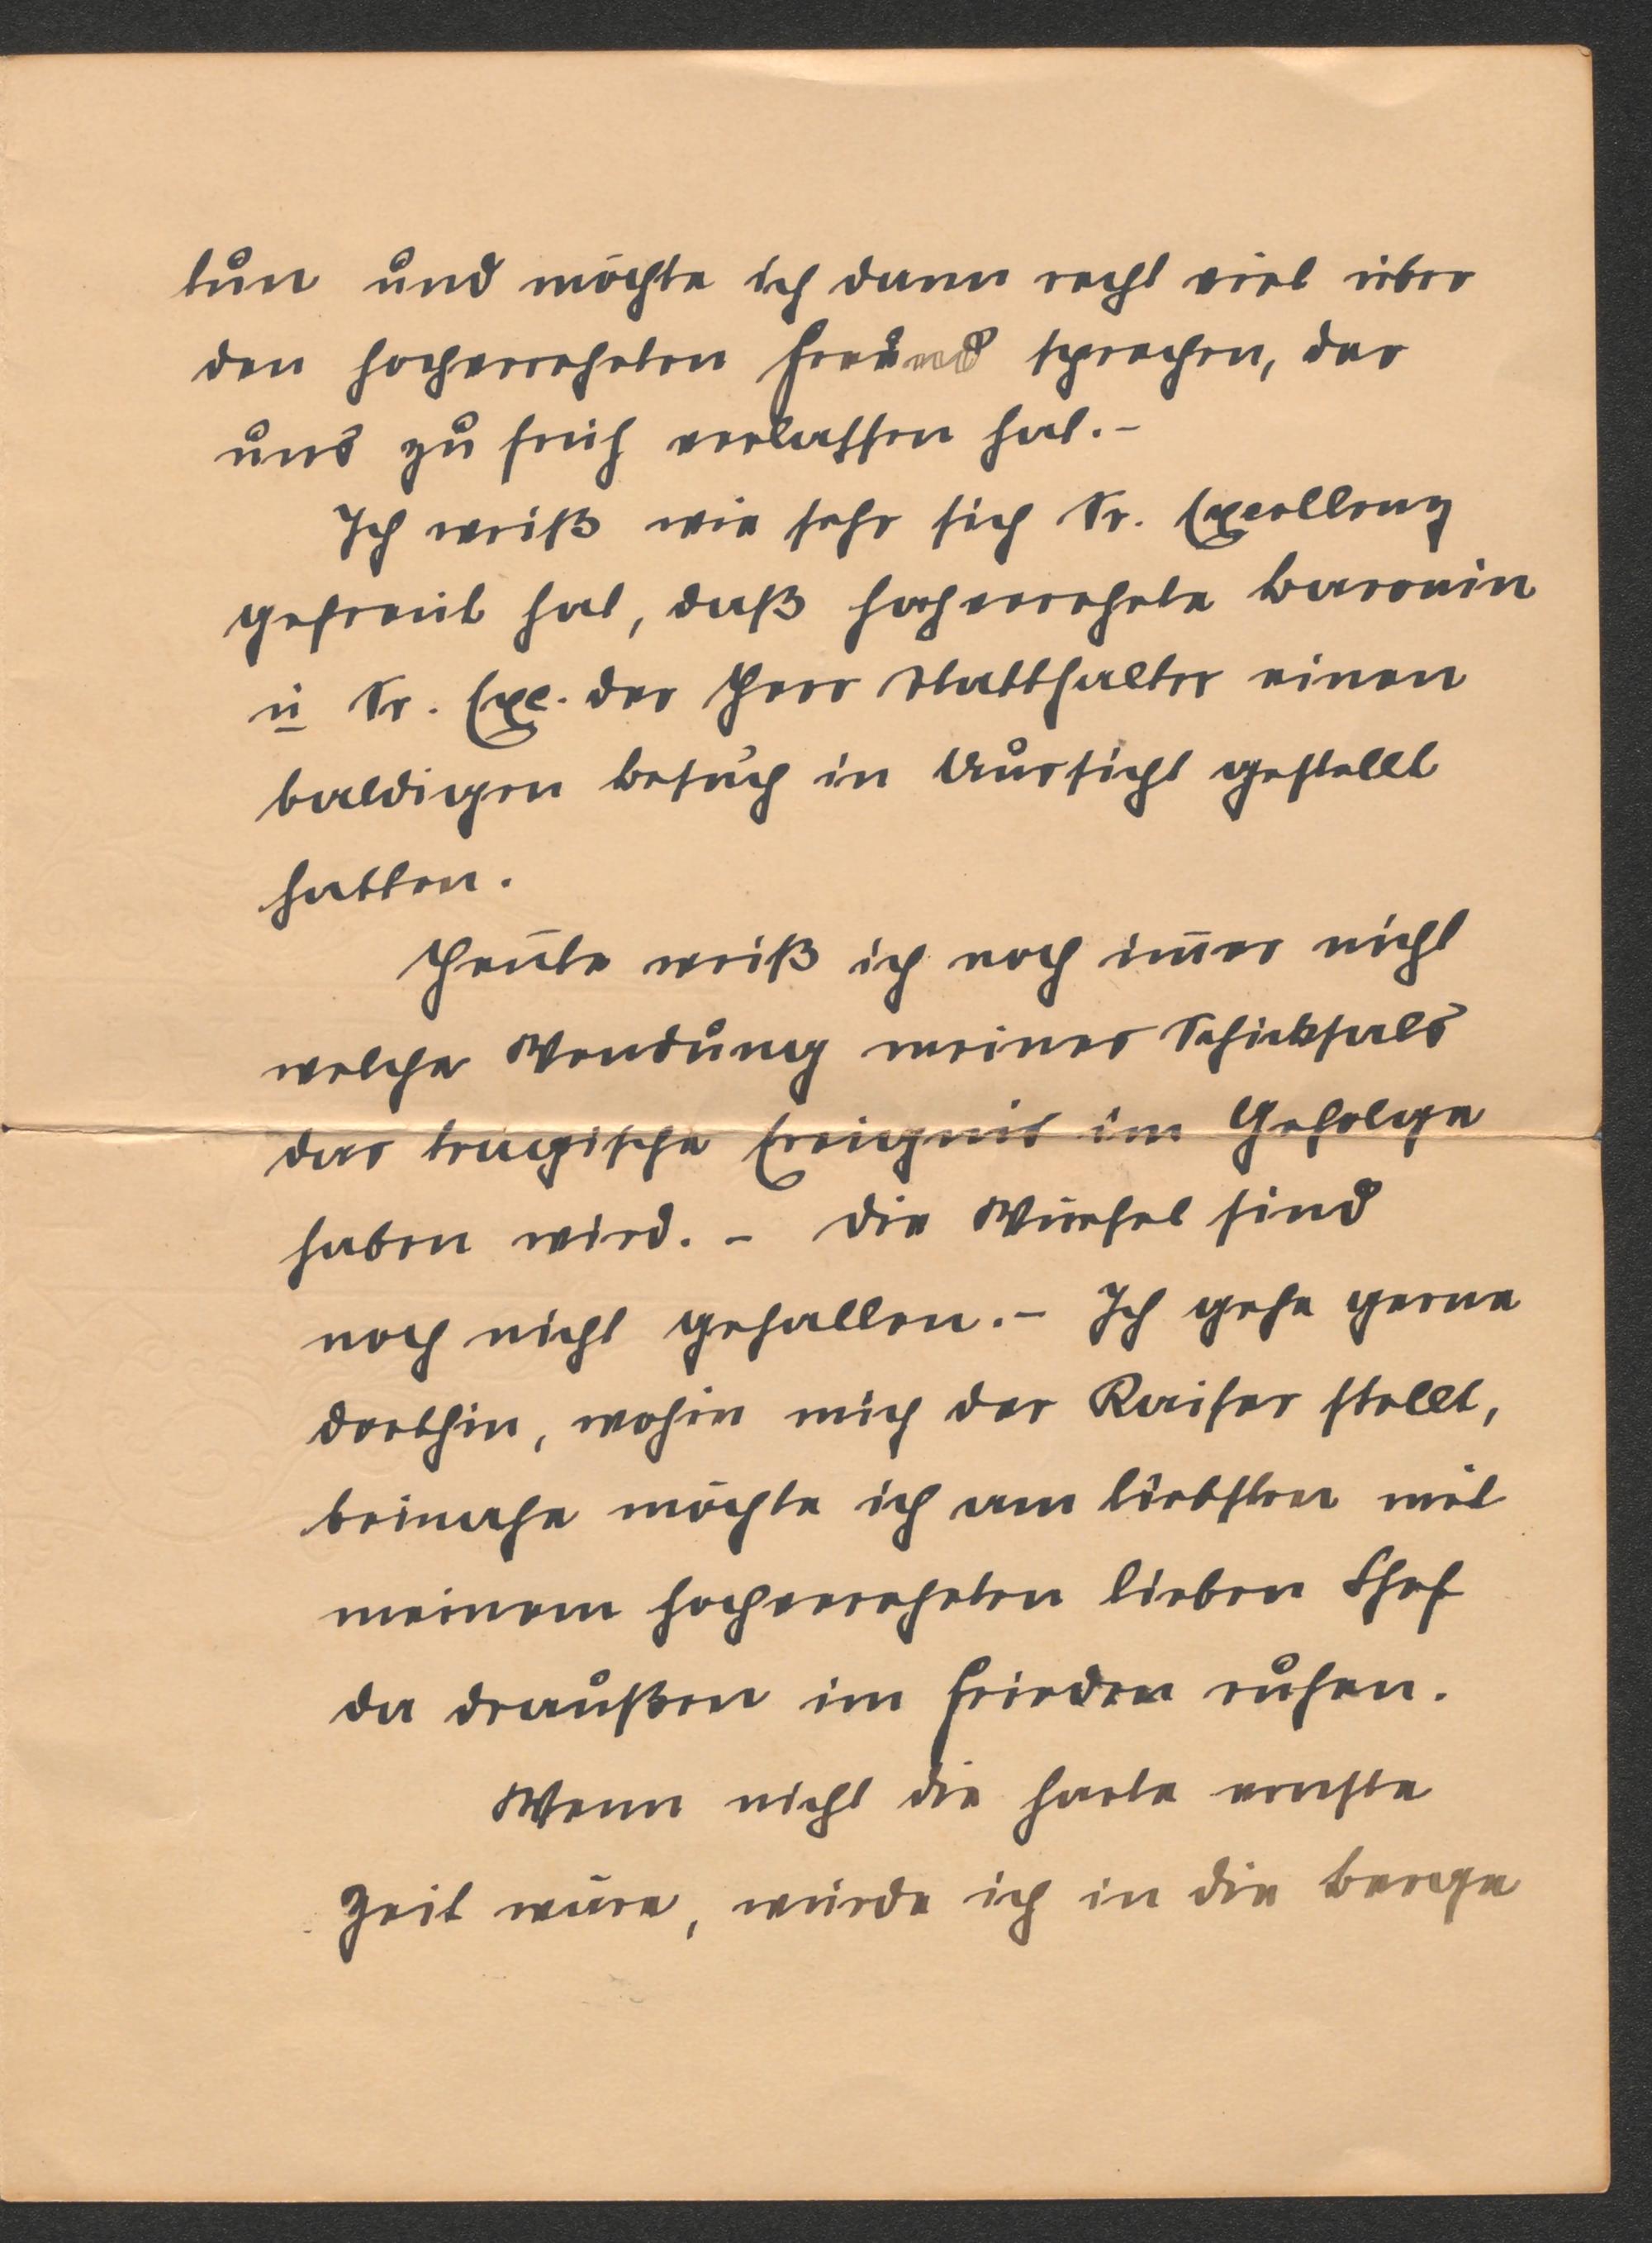 tun und möchte ich dann recht viel über
den hochverehrten Freund sprechen, der
uns zu früh verlassen hat.–
Ich weiß wie sehr sich Sr. Excellenz
gefreut hat, daß hochverehrte Baronin
u Sr. Exc. der Herr Statthalter einen
baldigen Besuch in Aussicht gestellt
hatten.
Heute weiß ich noch im̄er nicht
welche Wendung meines Schicksals
das tragische Ereignis im Gefolge
haben wird. – Die Würfel sind
noch nicht gefallen.– Ich gehe gerne
dorthin, wohin mich der Kaiser stellt,
beinahe möchte ich am liebsten mit
meinem hochverehrten lieben Chef
da draußen im Frieden ruhen.
Wenn nicht die harte ernste
Zeit wäre, würde ich in die Berge